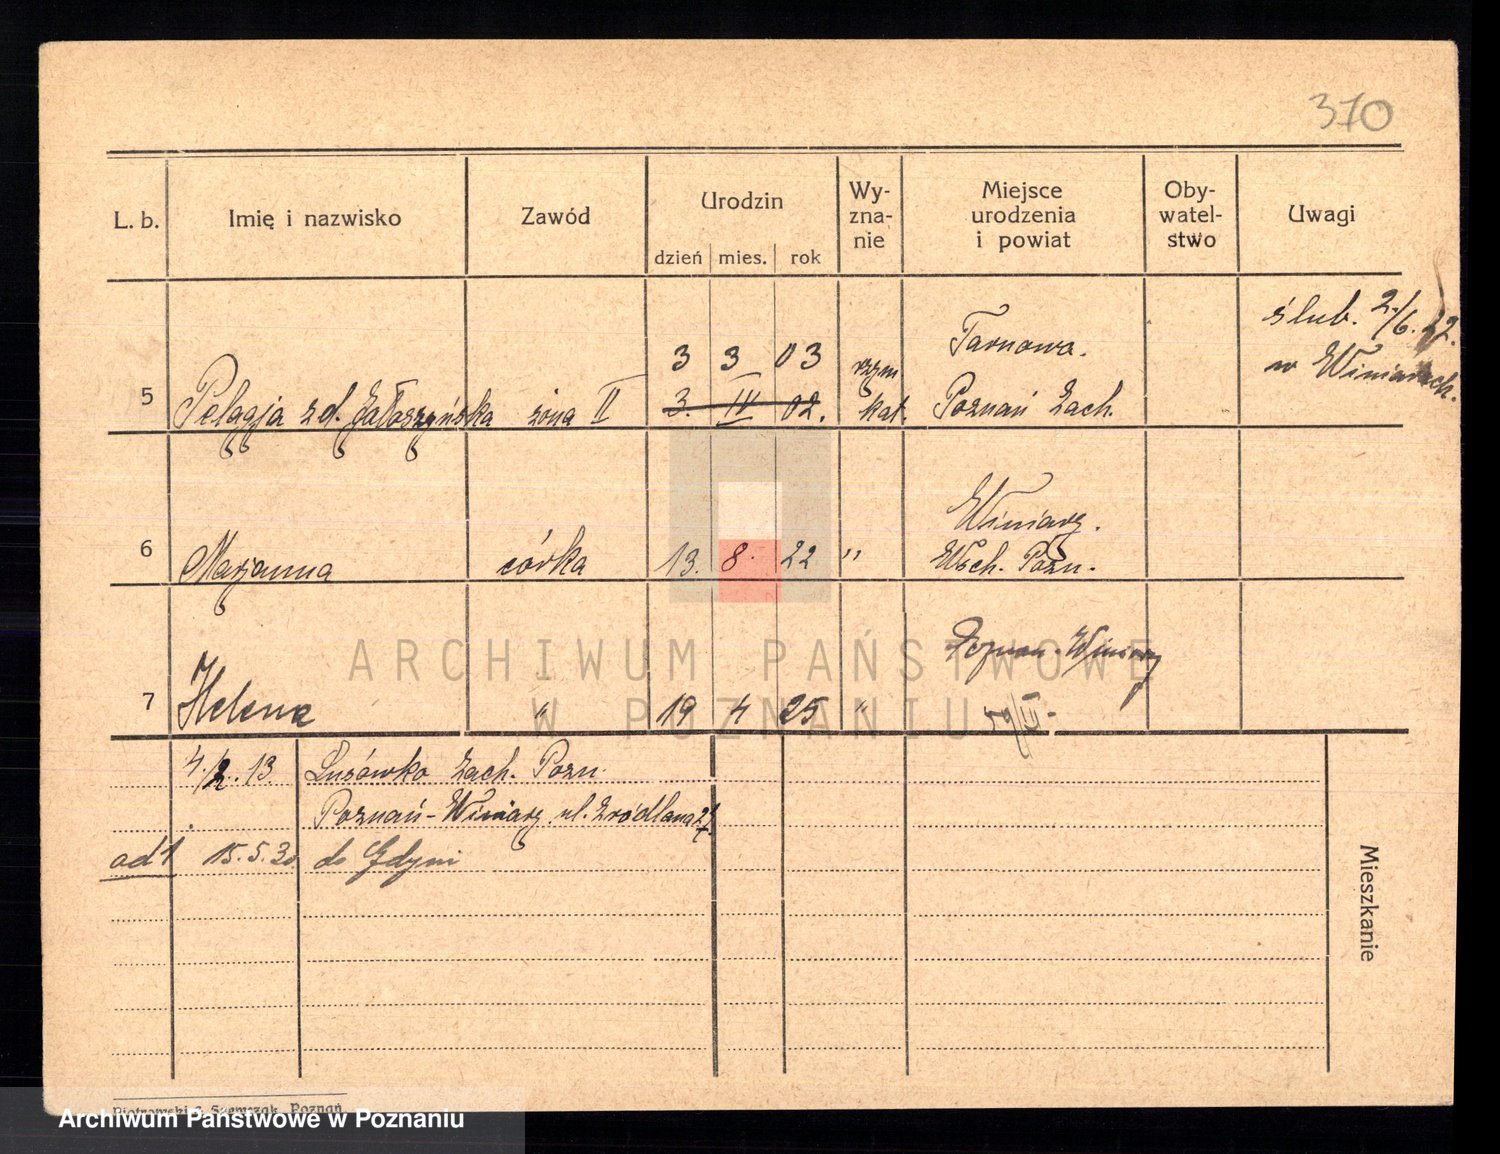 370
L. b. Imię i nazwisko Zawód Urodzin Wy-zna-nie Miejsce urodzenia i powiat Oby-watel-stwo Uwagi
dzień mies. rok
ślub. 2/6. 22.
w Winiarach.
3 3 03 Tarnowa.
5 Pelagja zd. Gałoszyńska żona II 3. IV 02. rzym kat. Poznań Zach.
Winiary.
6 Marjanna córka 13. 8. 22 " Wsch. Pozn.
Poznań-Winiary
7 Helena " 19 4 25 "
ARCHIWUM PAŃSTWOWE
W POZNANIU
4./2. 13. Lusówko Zach. Pozn.
Poznań-Winiary ul. Źródlana
ad 1 15.5.30 do Gdyni
Mieszkanie
Piotrowski & Szemczak, Poznań
Archiwum Państwowe w Poznaniu